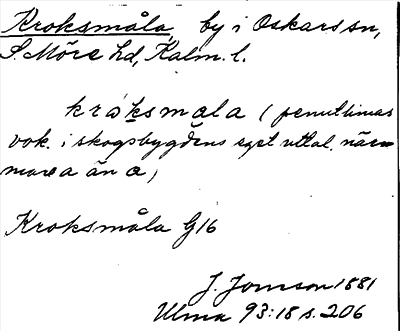 Kroksmåla, by i Oskars sn,
S. Möre hd, Kalm. l.
kråksmala (penultimas
vok. i skogsbygdens eget uttal närm
mare a än o)
Kroksmåla G16
J. Jonsson 1881
Ulma 93:18 s. 206